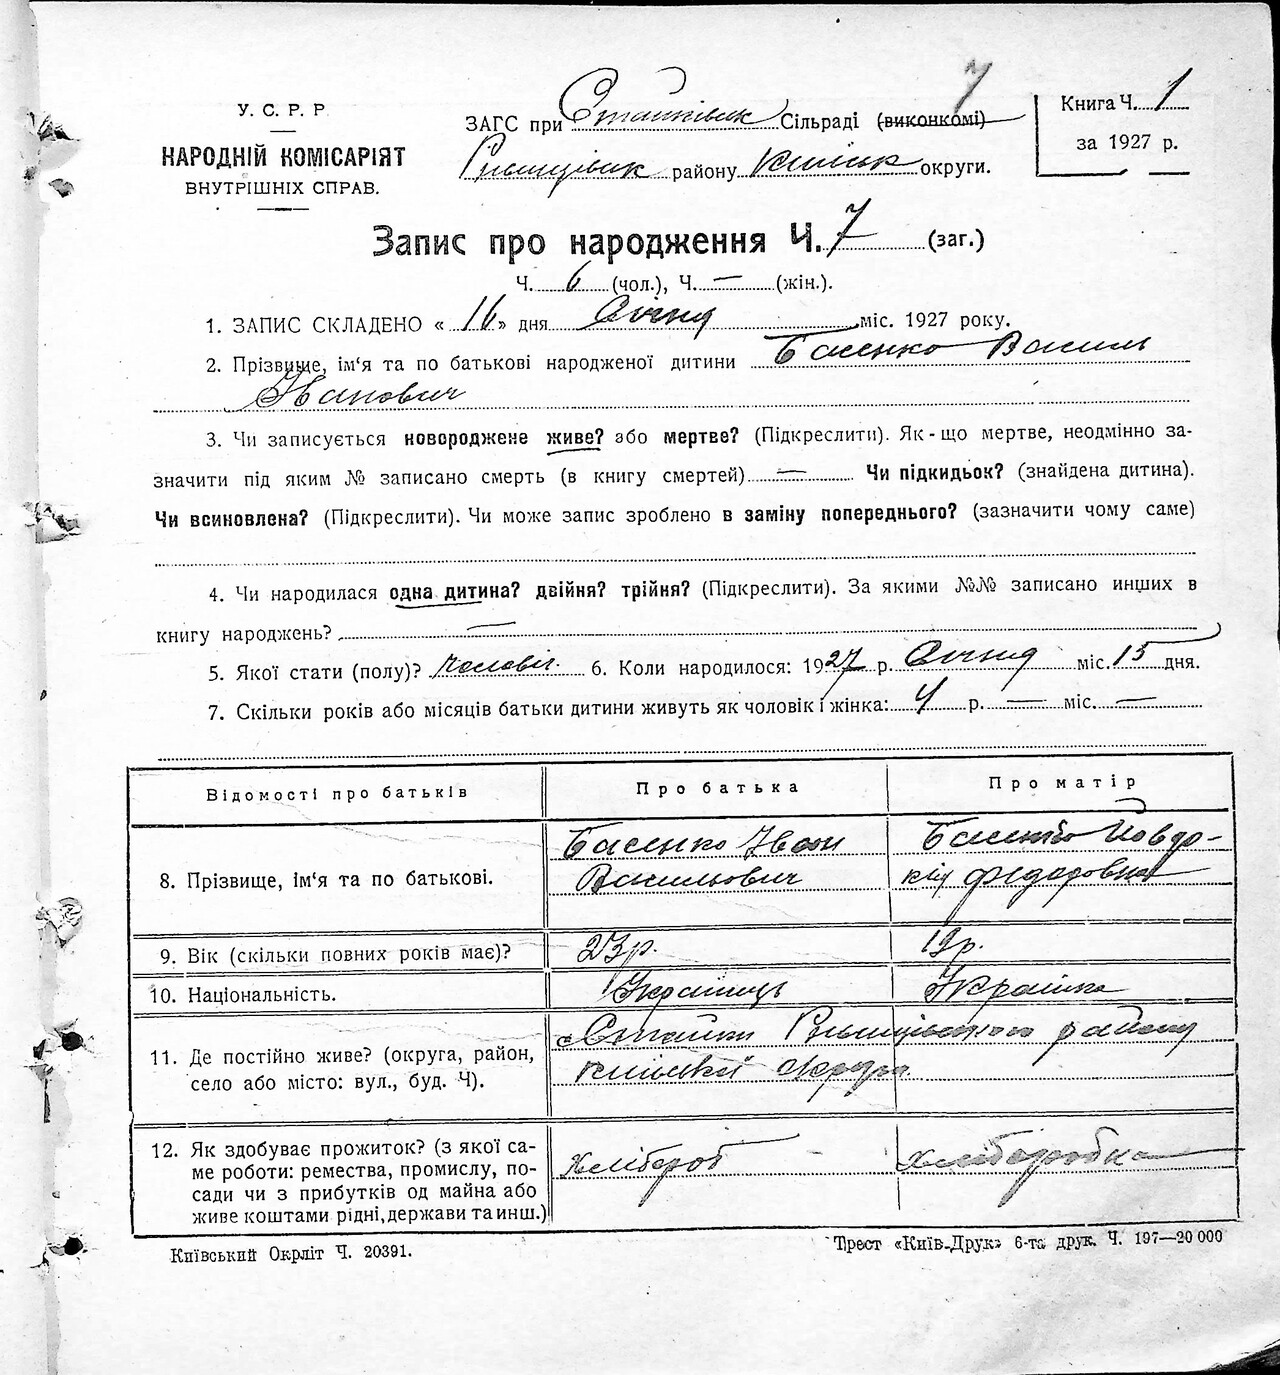 7
У. С. Р. Р
НАРОДНІЙ КОМІСАРІЯТ
ВНУТРІШНІХ СПРАВ.
ЗАГС при Стайківск Сільраді (виконкомі)
Ржищівск району Київськ округи.
Книга Ч. 1
за 1927 р.
Запис про народження Ч. 7 (заг.)
Ч. 6 (чол.), Ч. — (жін.).
1. ЗАПИС СКЛАДЕНО « 16 » дня Січня міс. 1927 року.
2. Прізвище, ім'я та по батькові народженої дитини Басенко Василь
Іванович
3. Чи записується новороджене живе? або мертве? (Підкреслити). Як-що мертве, неодмінно за-
значити під яким № записано смерть (в книгу смертей) — Чи підкидьок? (знайдена дитина).
Чи всиновлена? (Підкреслити). Чи може запис зроблено в заміну попереднього? (зазначити чому саме)
4. Чи народилася одна дитина? двійня? трійня? (Підкреслити). За якими №№ записано инших в
книгу народжень? —
5. Якої стати (полу)? чоловіч. 6. Коли народилося: 1927 р. Січня міс. 15 дня.
7. Скільки років або місяців батьки дитини живуть як чоловік і жінка: 4 р. — міс. —
Відомості про батьків Про батька Про матір
8. Прізвище, ім'я та по батькові. Басенко Іван Васильович Басенко Йовдо-кія Федоровна
9. Вік (скільки повних років має)? 23р. 19р.
10. Національність. Українець Українка
11. Де постійно живе? (округа, район, с Стайки Ржищівського району
село або місто: вул., буд. Ч). Київської округи.
12. Як здобуває прожиток? (з якої са-
ме роботи: ремества, промислу, по- хлібороб хліборобка
сади чи з прибутків од майна або
живе коштами рідні, держави та инш.)
Київський Окрліт Ч. 20391.
Трест «Київ-Друк» 6-та друк. Ч. 197—20 000